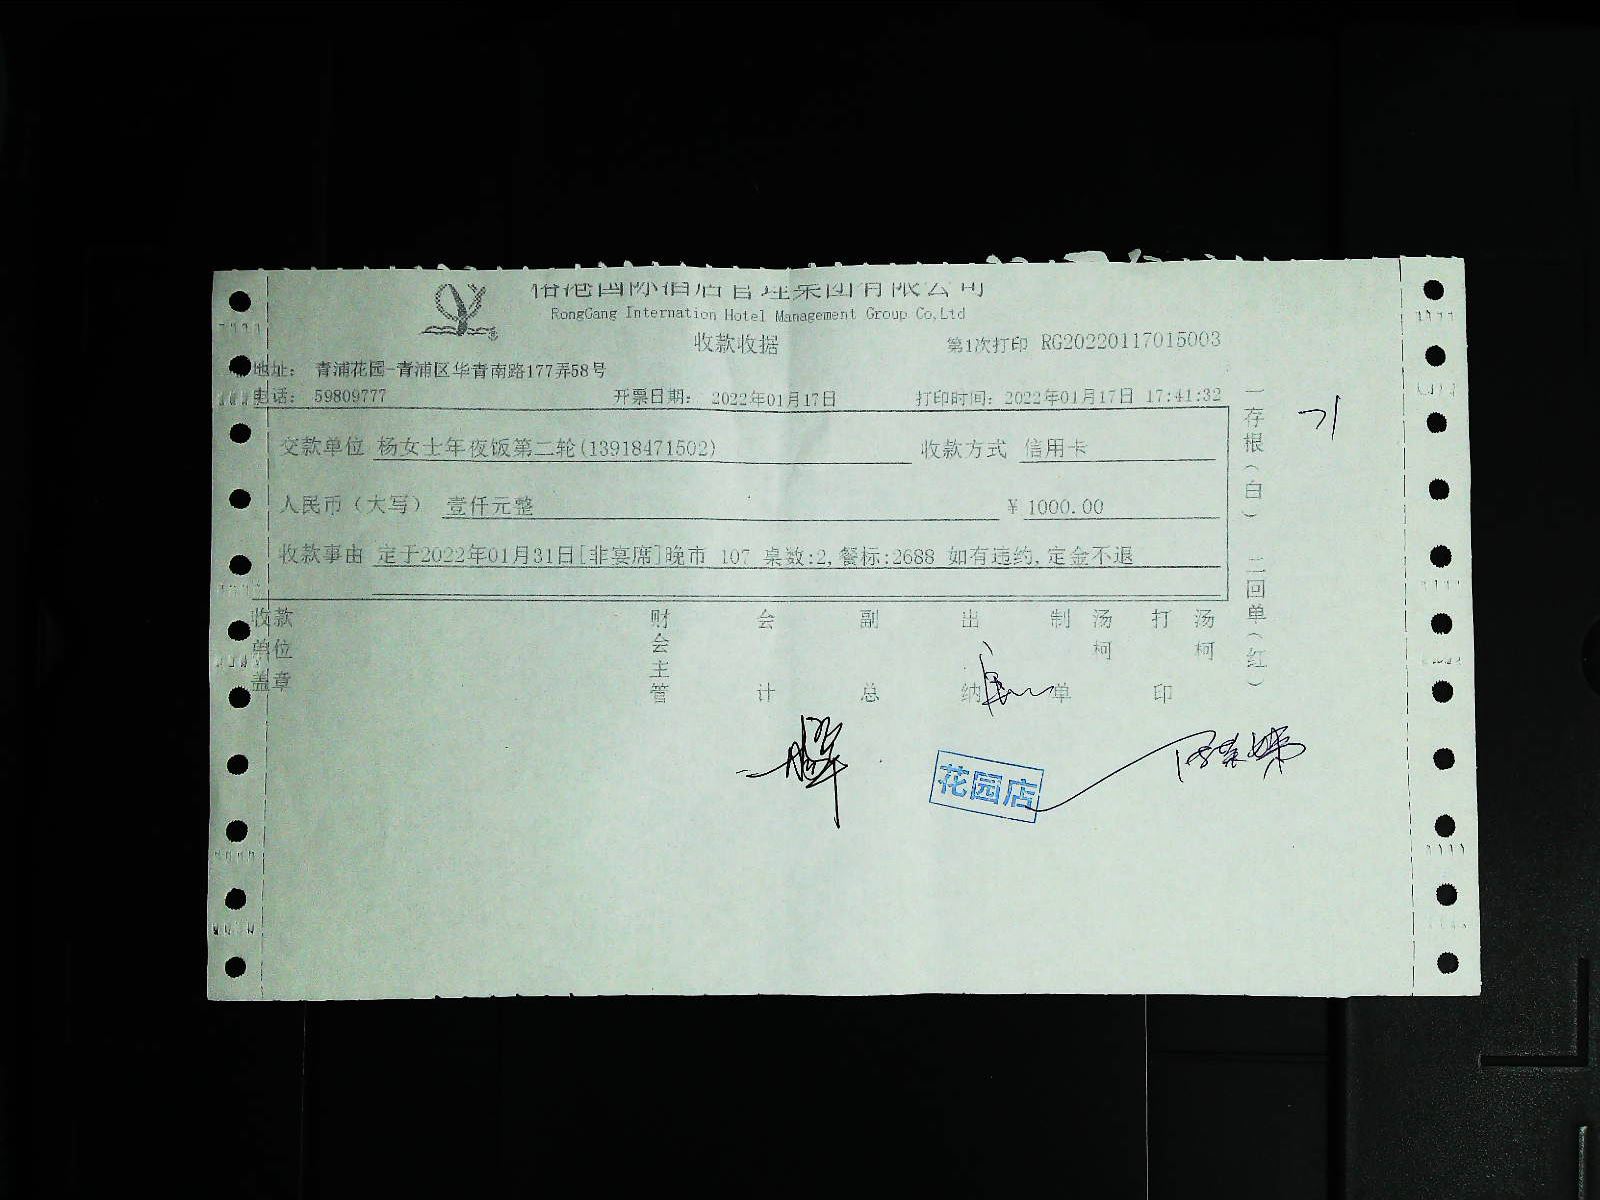 国际酒店管理集团有限公司
RongGang Internation Hotel Management Group Co,Ltd
收款收据
第1次打印 RG20220117015003
地址: 青浦花园-青浦区华青南路177弄58号
电话: 59809777 开票日期: 2022年01月17日 打印时间: 2022年01月17日 17:41:32
交款单位 杨女士年夜饭第二轮(13918471502) 收款方式 信用卡
人民币(大写) 壹仟元整 ¥ 1000.00
收款事由 定于2022年01月31日[非宴席]晚市 107 桌数:2,餐标:2688 如有违约,定金不退
收款单位盖章 财会主管 会计 副总 出纳 制单 汤柯 打印 汤柯
一存根(白) 二回单(红)
花园店